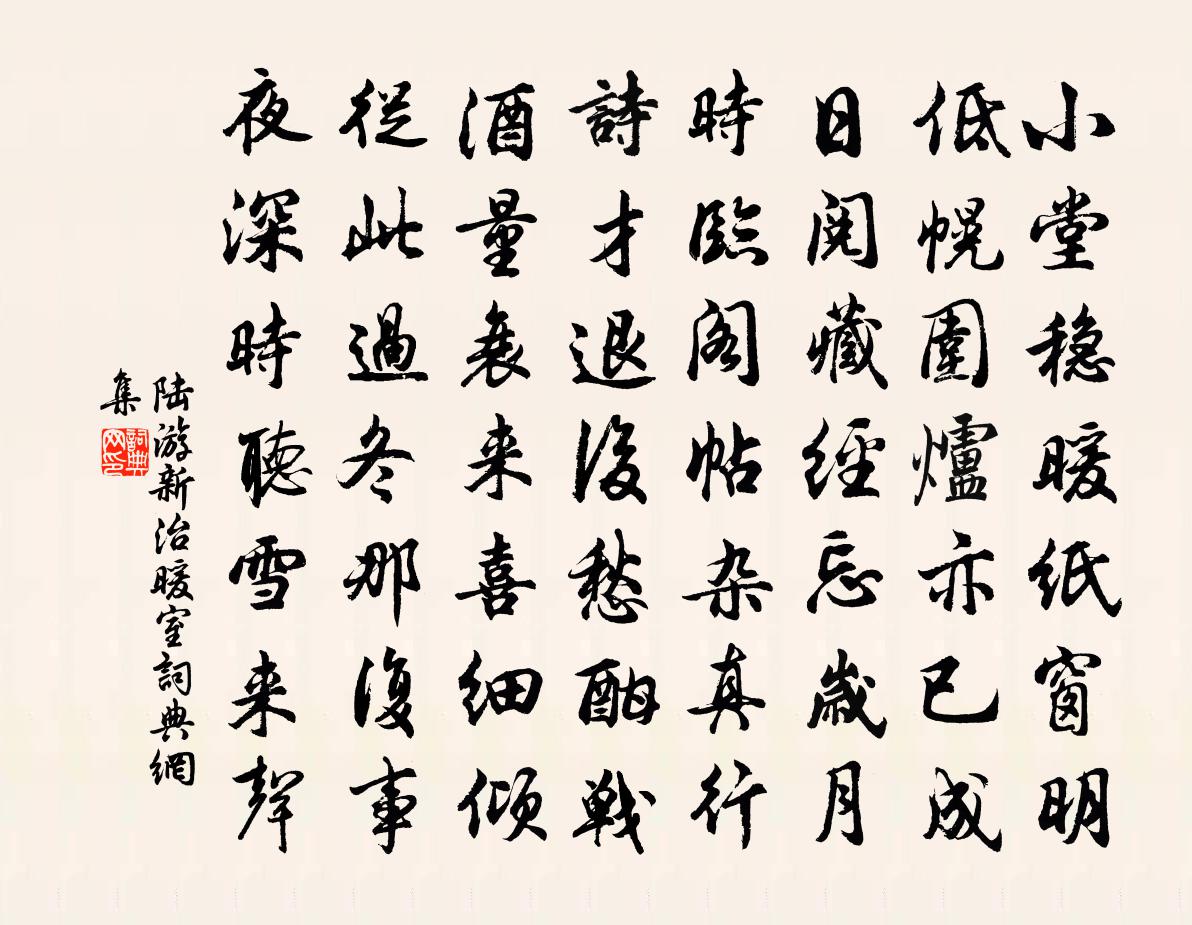 小堂稳暖紙窗明
低幌圍爐亦已成
日閱藏經忘歲月
時臨閣帖杂真行
詩才退後愁酣戦
酒量衰来喜細傾
從此過冬那復事
夜深時聽雪来聲
陆游新治暖室詞典網
集
詞典
网印